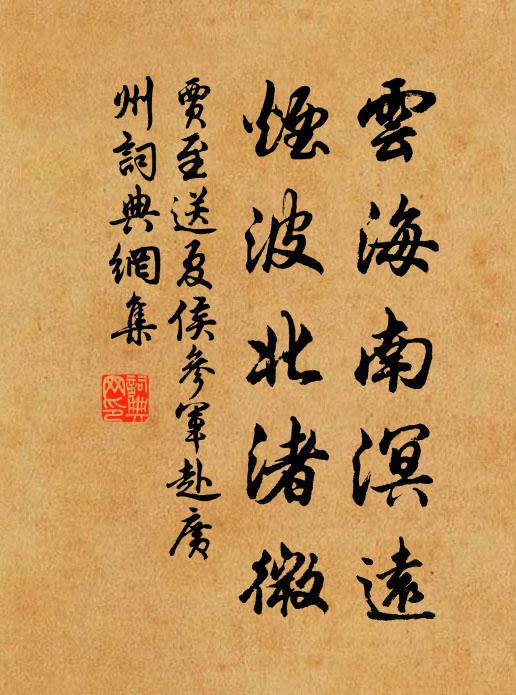 雲海南溟遠
煙波北渚微
賈至送夏侯參軍赴廣
州詞典網集
詞典
网印